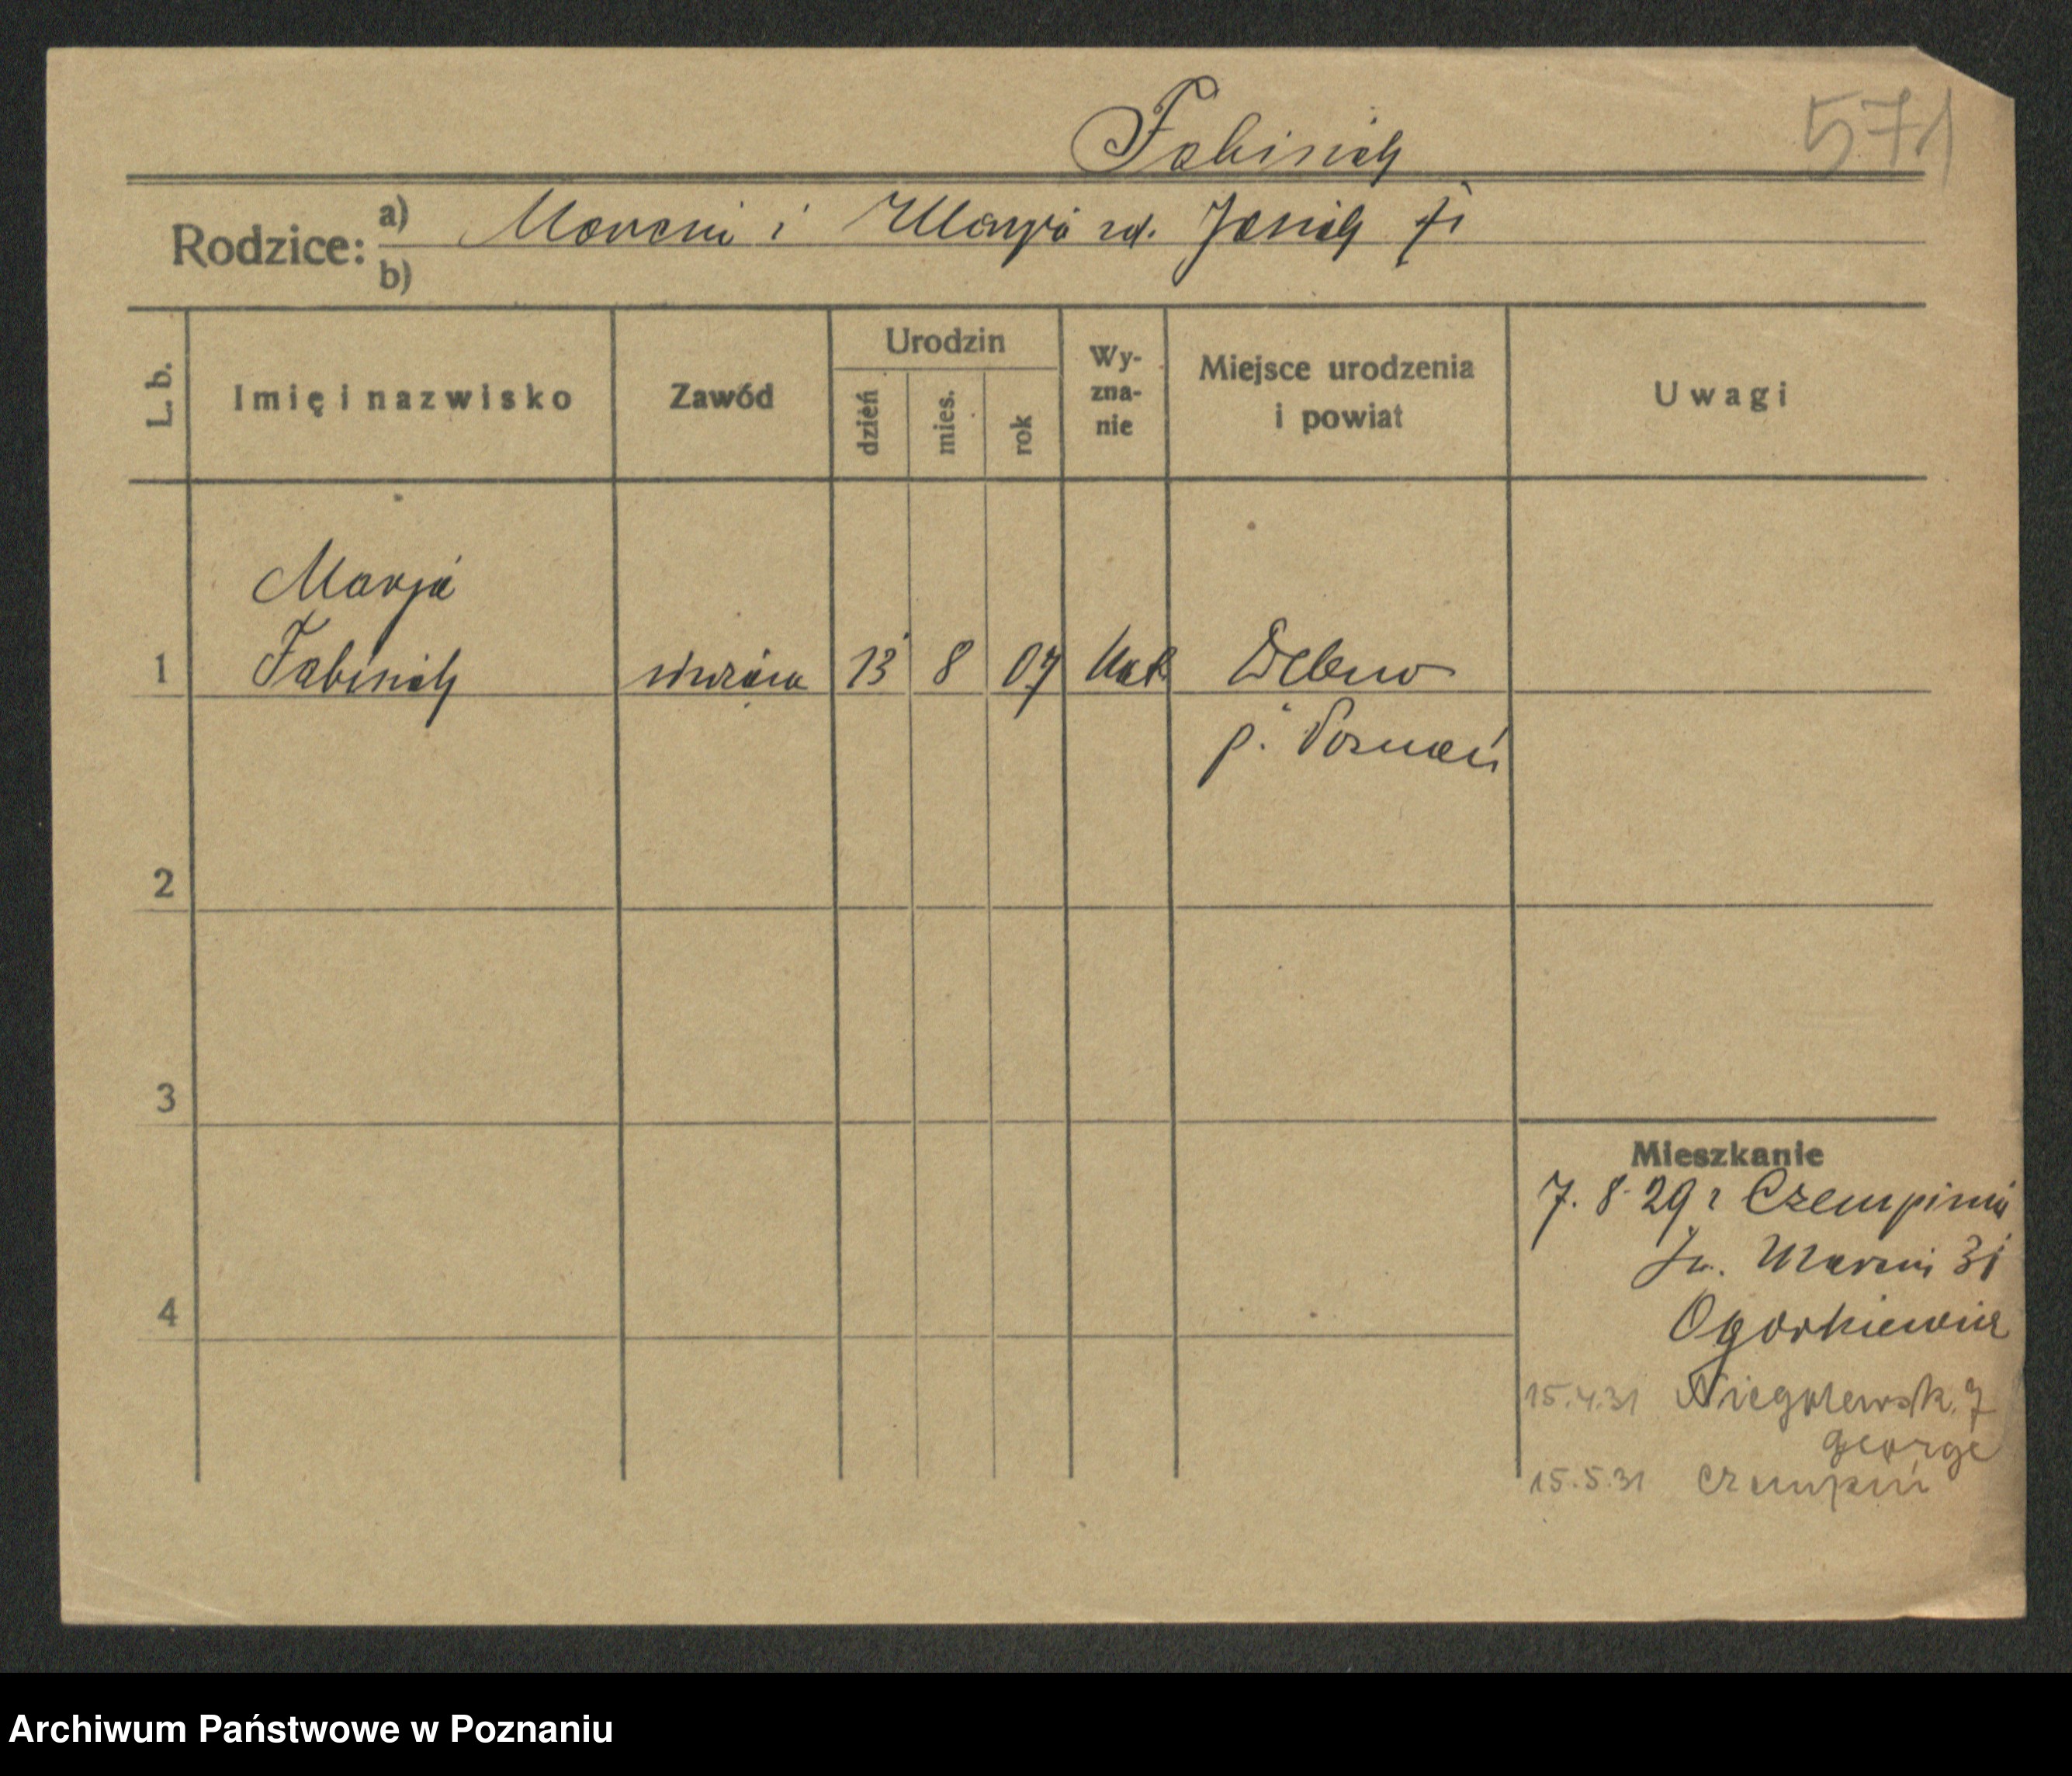 571
Fabisiak
Rodzice: a) Marcin i Marja zd. Jasiak
b)
L. b. Imię i nazwisko Zawód Urodzin dzień mies. rok Wy-zna-nie Miejsce urodzenia i powiat Uwagi
Marja
1 Fabisiak służąca 13 8 07 kat
p. Poznań
2
3
4
Mieszkanie
7. 8. 29 r Czempinia
Św. Marcin 31
Ogorkiewicz
15.4.31 Niegolewsk. 7
George
15.5.31 Czempiń
Archiwum Państwowe w Poznaniu